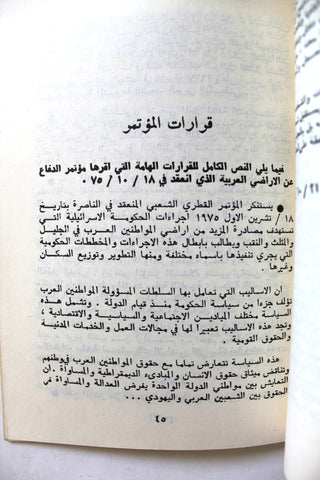 قرارات المؤتمر
فيما يلي النص الكامل للقرارات الهامة التي اقرها مؤتمر الدفاع
عن الاراضي العربية الذي انعقد في ١٨ / ١٠ / ٧٥ .
يستنكر المؤتمر القطري الشعبي المنعقد في الناصرة بتاريخ
١٨ / تشرين الاول ١٩٧٥ اجراءات الحكومة الاسرائيلية التي
تستهدف مصادرة المزيد من اراضي المواطنين العرب في الجليل
والمثلث والنقب ويطالب بابطال هذه الاجراءات والمخططات الحكومية
التي يجري تنفيذها باسماء مختلفة ومنها التطوير وتوزيع السكان
وغيرها .
ان الاساليب التي تعامل بها السلطات المسؤولة المواطنين العرب
تؤلف جزءا من سياسة الحكومة منذ قيام الدولة . وتشمل هذه
السياسة مختلف الميادين الاجتماعية والسياسية والاقتصادية ،
وتجد هذه الاساليب تعبيرا لها في مجالات العمل والخدمات المدنية
والحقوق القومية .
هذه السياسة تتعارض تماما مع حقوق المواطنين العرب في وطنهم
وتناقض ميثاق حقوق الانسان والمبادىء الديمقراطية والمساواة . ان
التعايش بين مواطني الدولة الواحدة يفرض العدالة والمساواة في
الحقوق بين الشعبين العربي واليهودي ..
٤٥